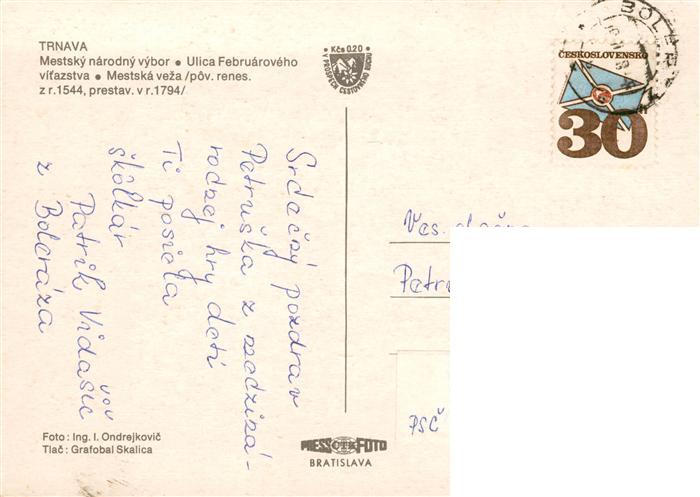 TRNAVA
Mestský národný výbor • Ulica Februárového
víťazstva • Mestská veža /pôv. renes.
z r.1544, prestav. v r.1794/
• Kčs 0.20 •
V PROSPECH CESTOVNÉHO RUCHU
BOLER
ČESKOSLOVENSKO
30
Srdečný pozdrav
Petruška z medzizá-
rodzej hry detí
Ti posiela
škôlkár
Patrik Vidašič
z Boleráza
Ves.
Petr
PSČ
Foto: Ing. I. Ondrejkovič
Tlač: Grafobal Skalica
PRESS ČTK FOTO
BRATISLAVA